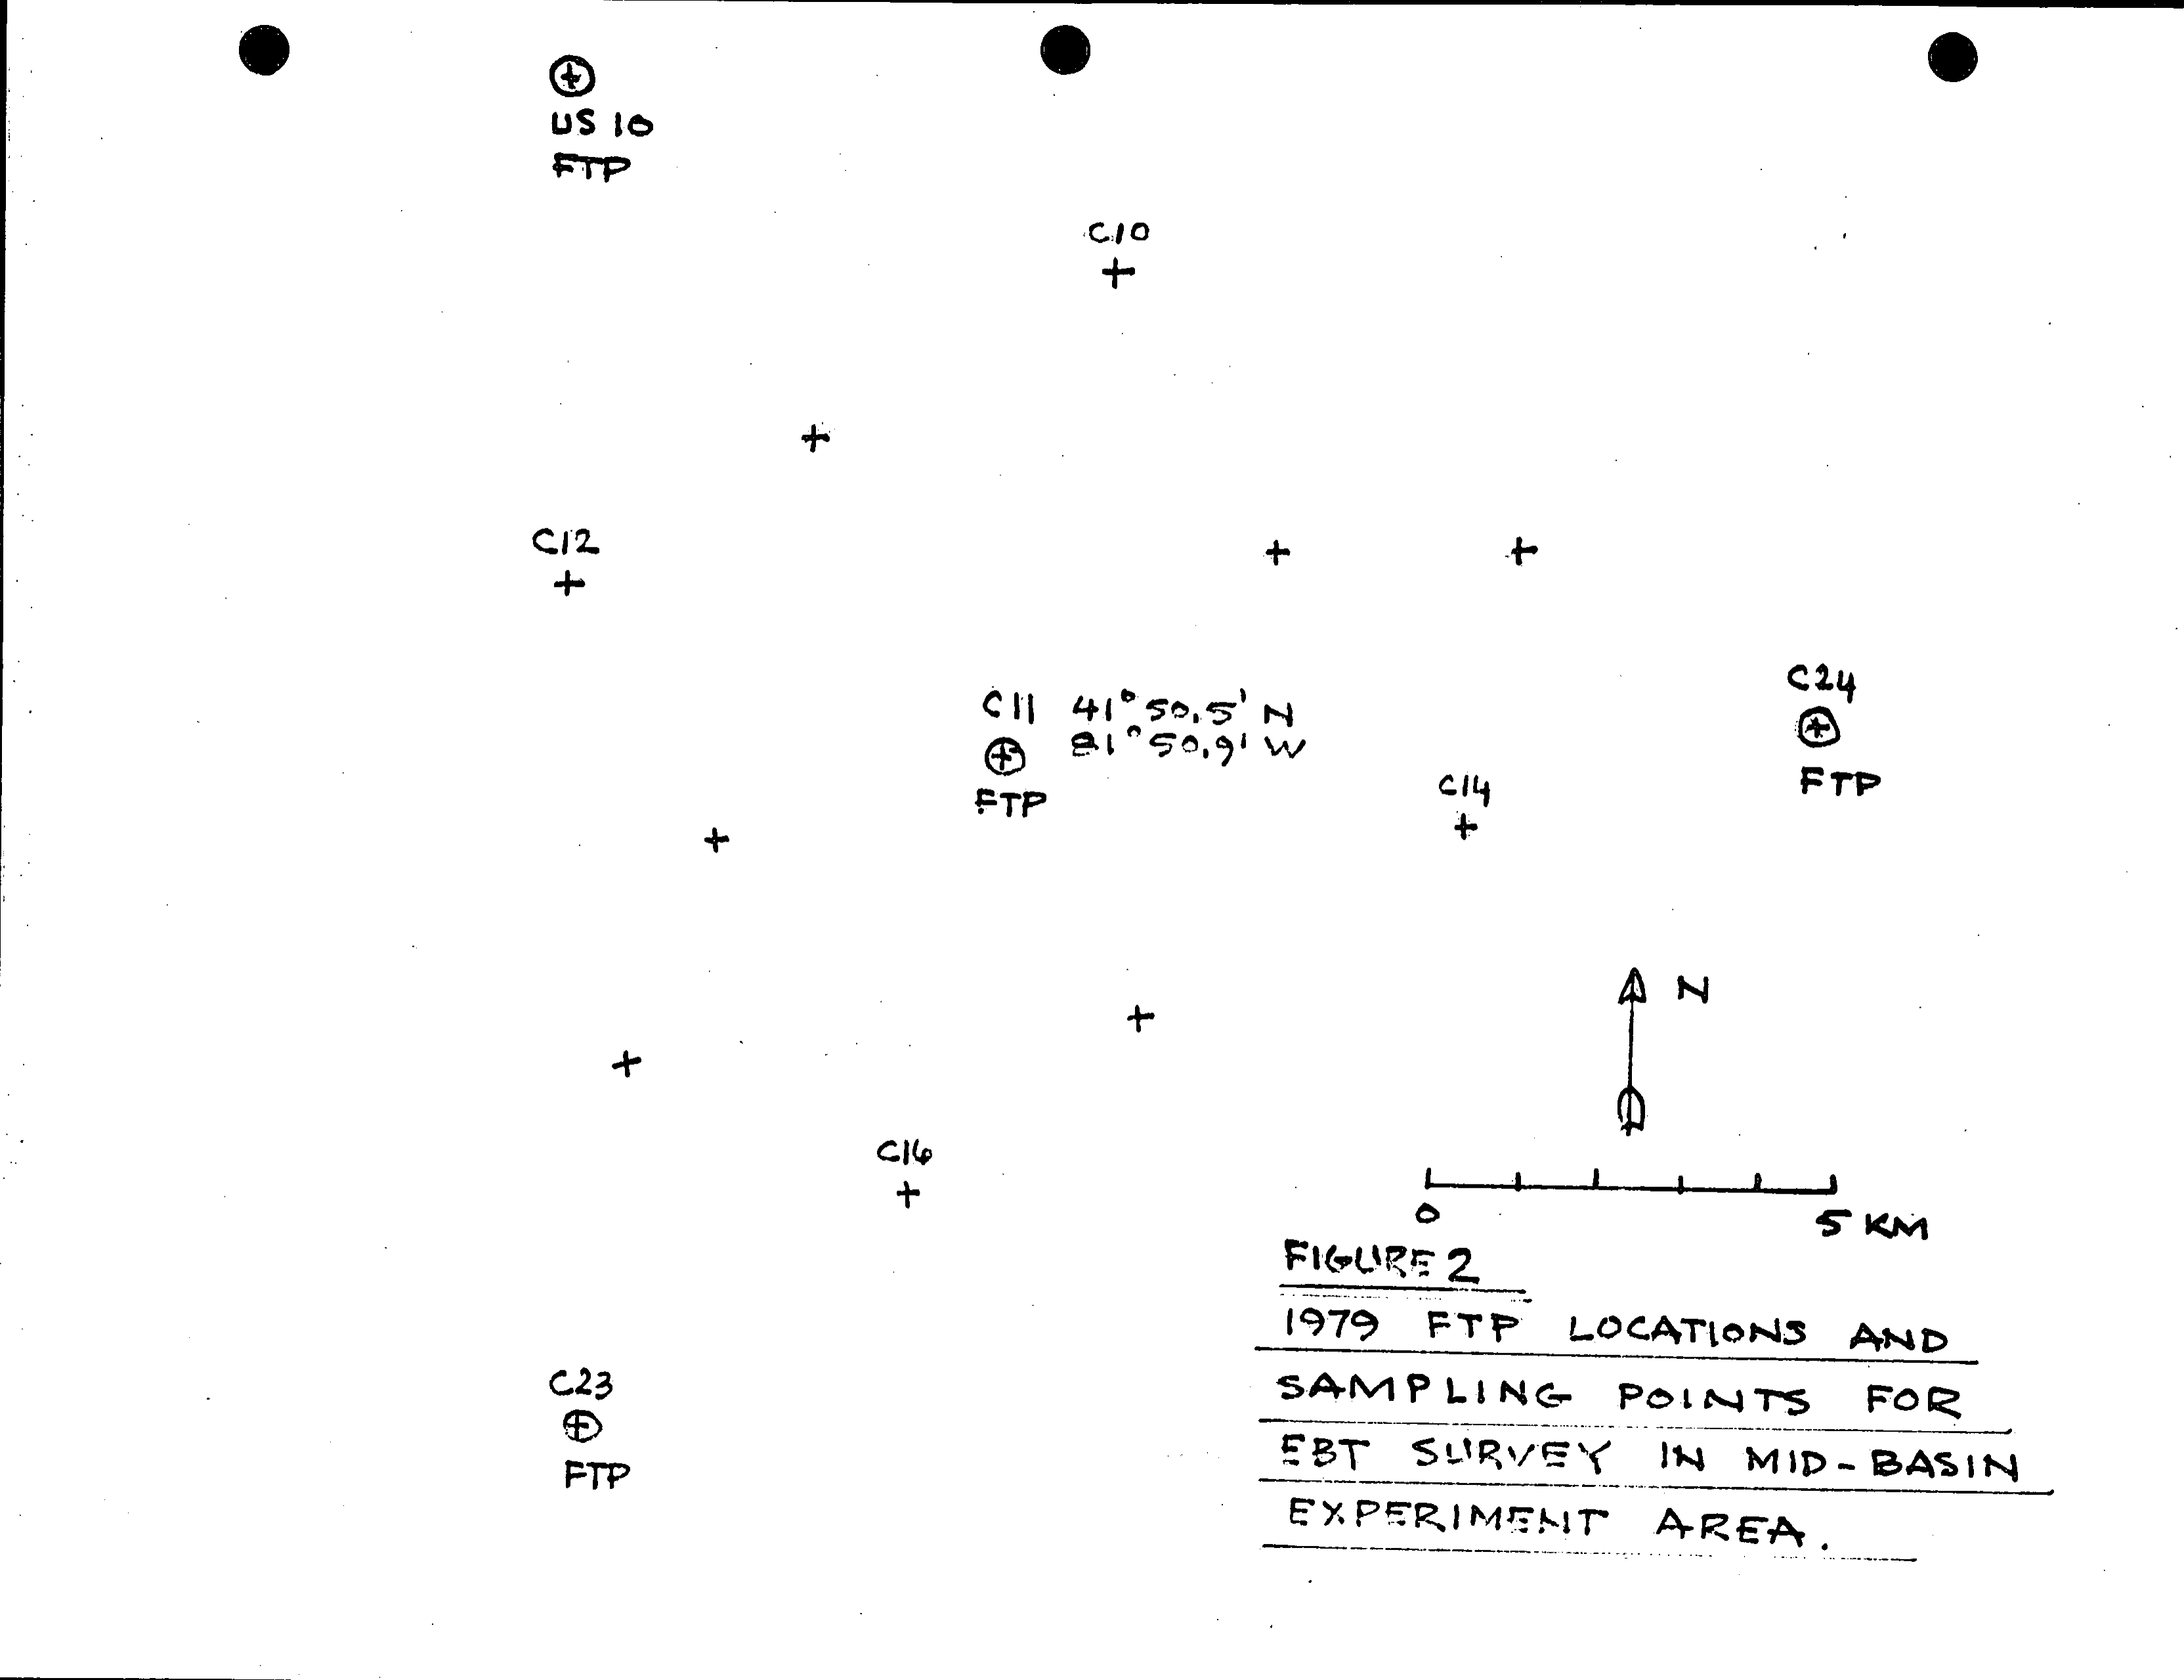 US 10
FTP
C10
C12
C24
FTP
C11 41° 50.5' N
81° 50.9' W
FTP
C14
N
C16
0
5 KM
C23
FTP
FIGURE 2
1979 FTP LOCATIONS AND
SAMPLING POINTS FOR
EBT SURVEY IN MID-BASIN
EXPERIMENT AREA.